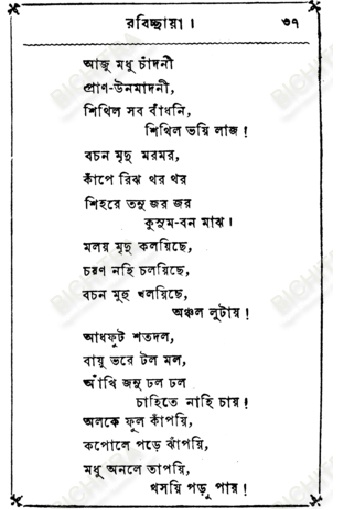 রবিচ্ছায়া। ৩৭
আজু মধু চাঁদনী
প্রাণ-উনমাদনী,
শিথিল সব বাঁধনি,
শিথিল ভয়ি লাজ!
বচন মৃদু মরমর,
কাঁপে রিঝ থর থর
শিহরে তনু জর জর
কুসুম-বন মাঝ।
মলয় মৃদু কলয়িছে,
চরণ নহি চলয়িছে,
বচন মুহু খলয়িছে,
অঞ্চল লুটায়!
আধফুট শতদল,
বায়ু ভরে টল মল,
আঁখি জনু ঢল ঢল
চাহিতে নাহি চায়!
অলকে ফুল কাঁপয়ি,
কপোলে পড়ে ঝাঁপয়ি,
মধু অনলে তাপয়ি,
খসয়ি পড়ু পায়!